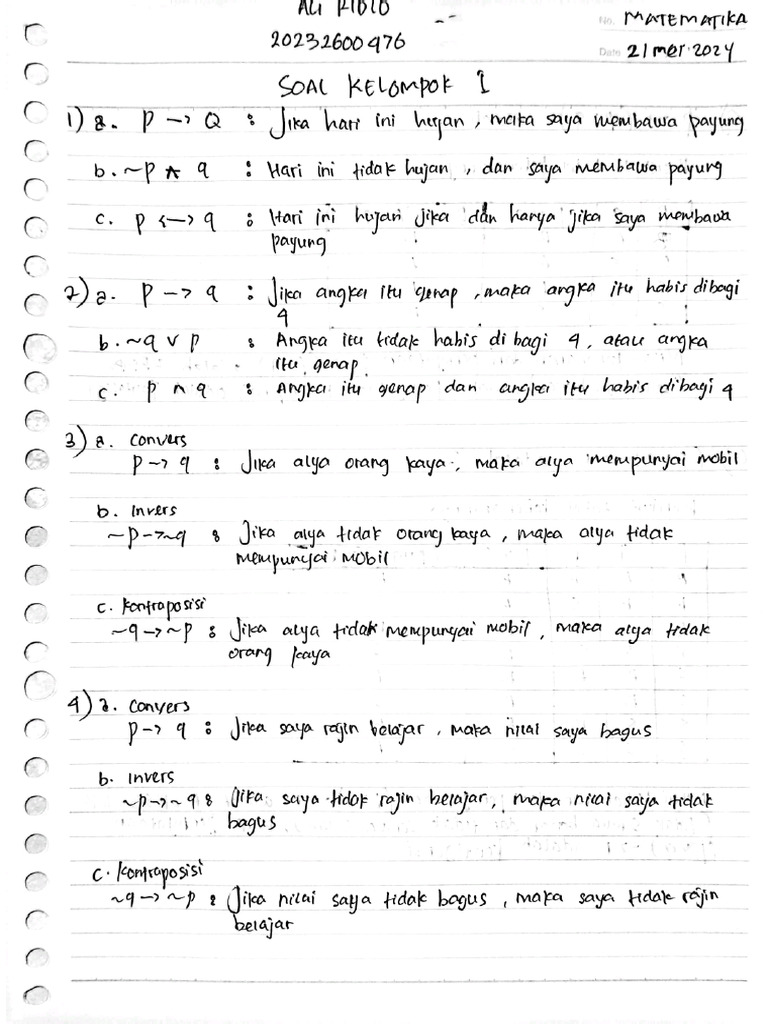 ALI RIDLO
No. MATEMATIKA
20232600476
Date 21 mei 2024
SOAL KELOMPOK 1
1) a. p → Q : Jika hari ini hujan, maka saya membawa payung
b. ~p ∧ q : Hari ini tidak hujan, dan saya membawa payung
c. p <-> q : Hari ini hujan jika dan hanya jika saya membawa
payung
2) a. p → q : Jika angka itu genap, maka angka itu habis dibagi
4
b. ~q ∨ p : Angka itu tidak habis di bagi 4, atau angka
itu genap
c. p ∧ q : Angka itu genap dan angka itu habis dibagi 4
3) a. Convers
p → q : Jika alya orang kaya, maka alya mempunyai mobil
b. Invers
~p → ~q : Jika alya tidak orang kaya, maka alya tidak
mempunyai mobil
c. Kontraposisi
~q → ~p : Jika alya tidak mempunyai mobil, maka alya tidak
orang kaya
4) a. Convers
p → q : Jika saya rajin belajar, maka nilai saya bagus
b. Invers
~p → ~q : Jika saya tidak rajin belajar, maka nilai saya tidak
bagus
c. Kontraposisi
~q → ~p : Jika nilai saya tidak bagus, maka saya tidak rajin
belajar